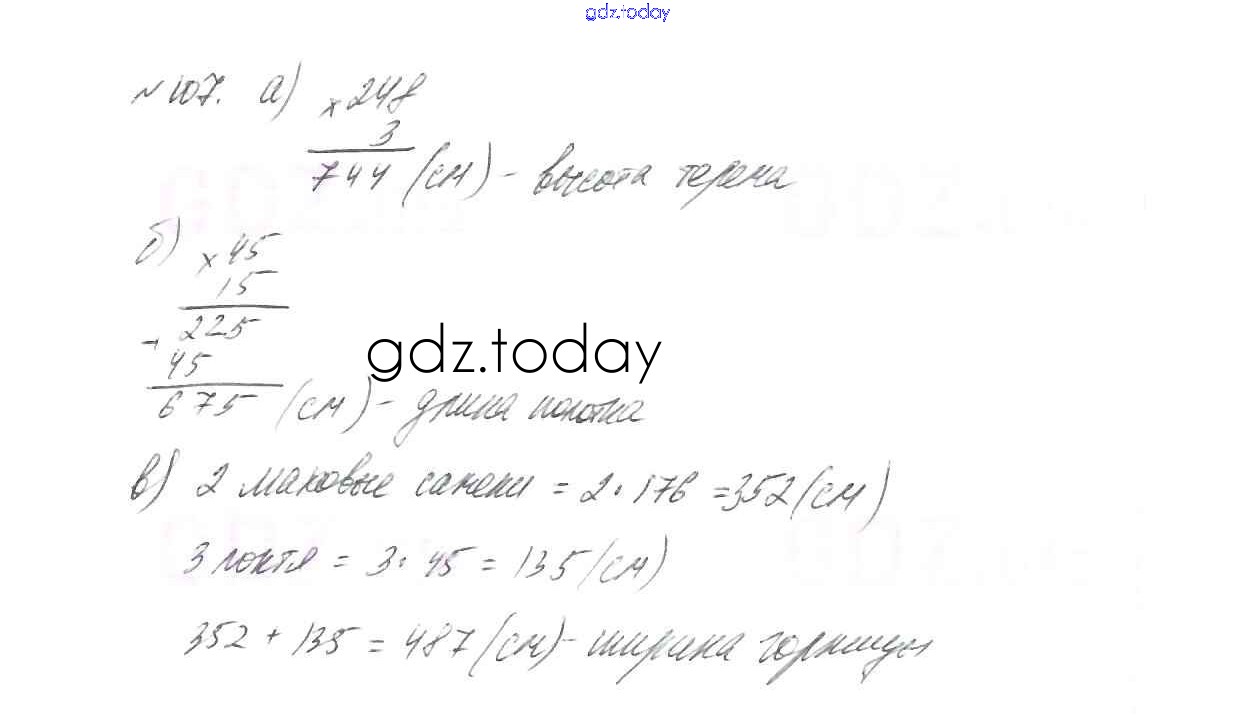 gdz.today
№107. а) × 248
3
744 (см) - высота терема
б) × 45
15
+ 225
45
675 (см) - длина полотна
gdz.today
в) 2 маховые сажени = 2·176 = 352 (см)
3 локтя = 3·45 = 135 (см)
352 + 135 = 487 (см) - ширина горницы